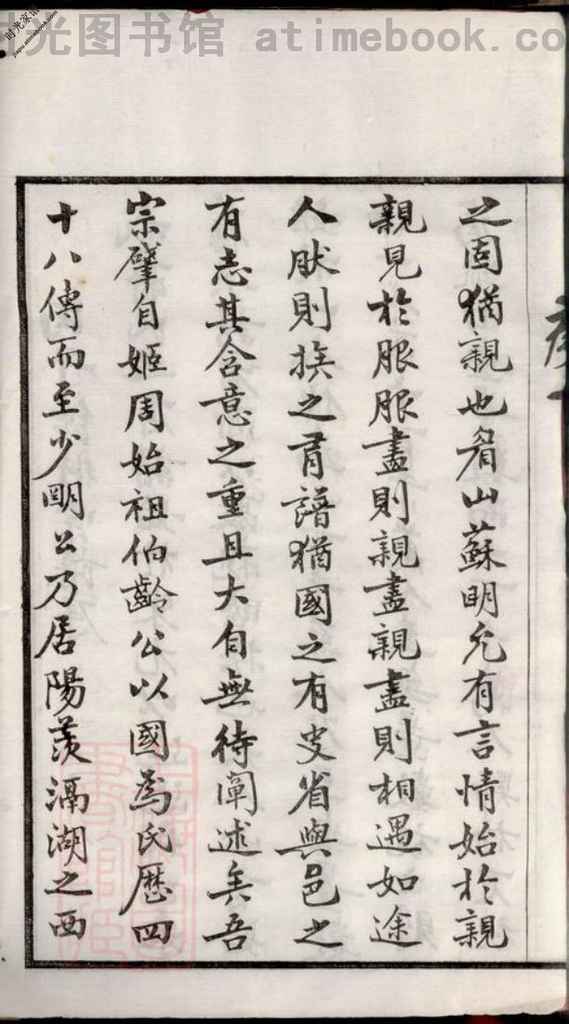 时光图书馆 atimebook.co
之固猶親也眉山蘇明允有言情始於親
親見於服服盡則親盡親盡則相遇如途
人肰則族之有譜猶國之有史省與邑之
有志其含意之重且大自無待闡述矣吾
宗肇自姬周始祖伯齡公以國爲氏歷四
十八傳而至少明公乃居陽羨滆湖之西